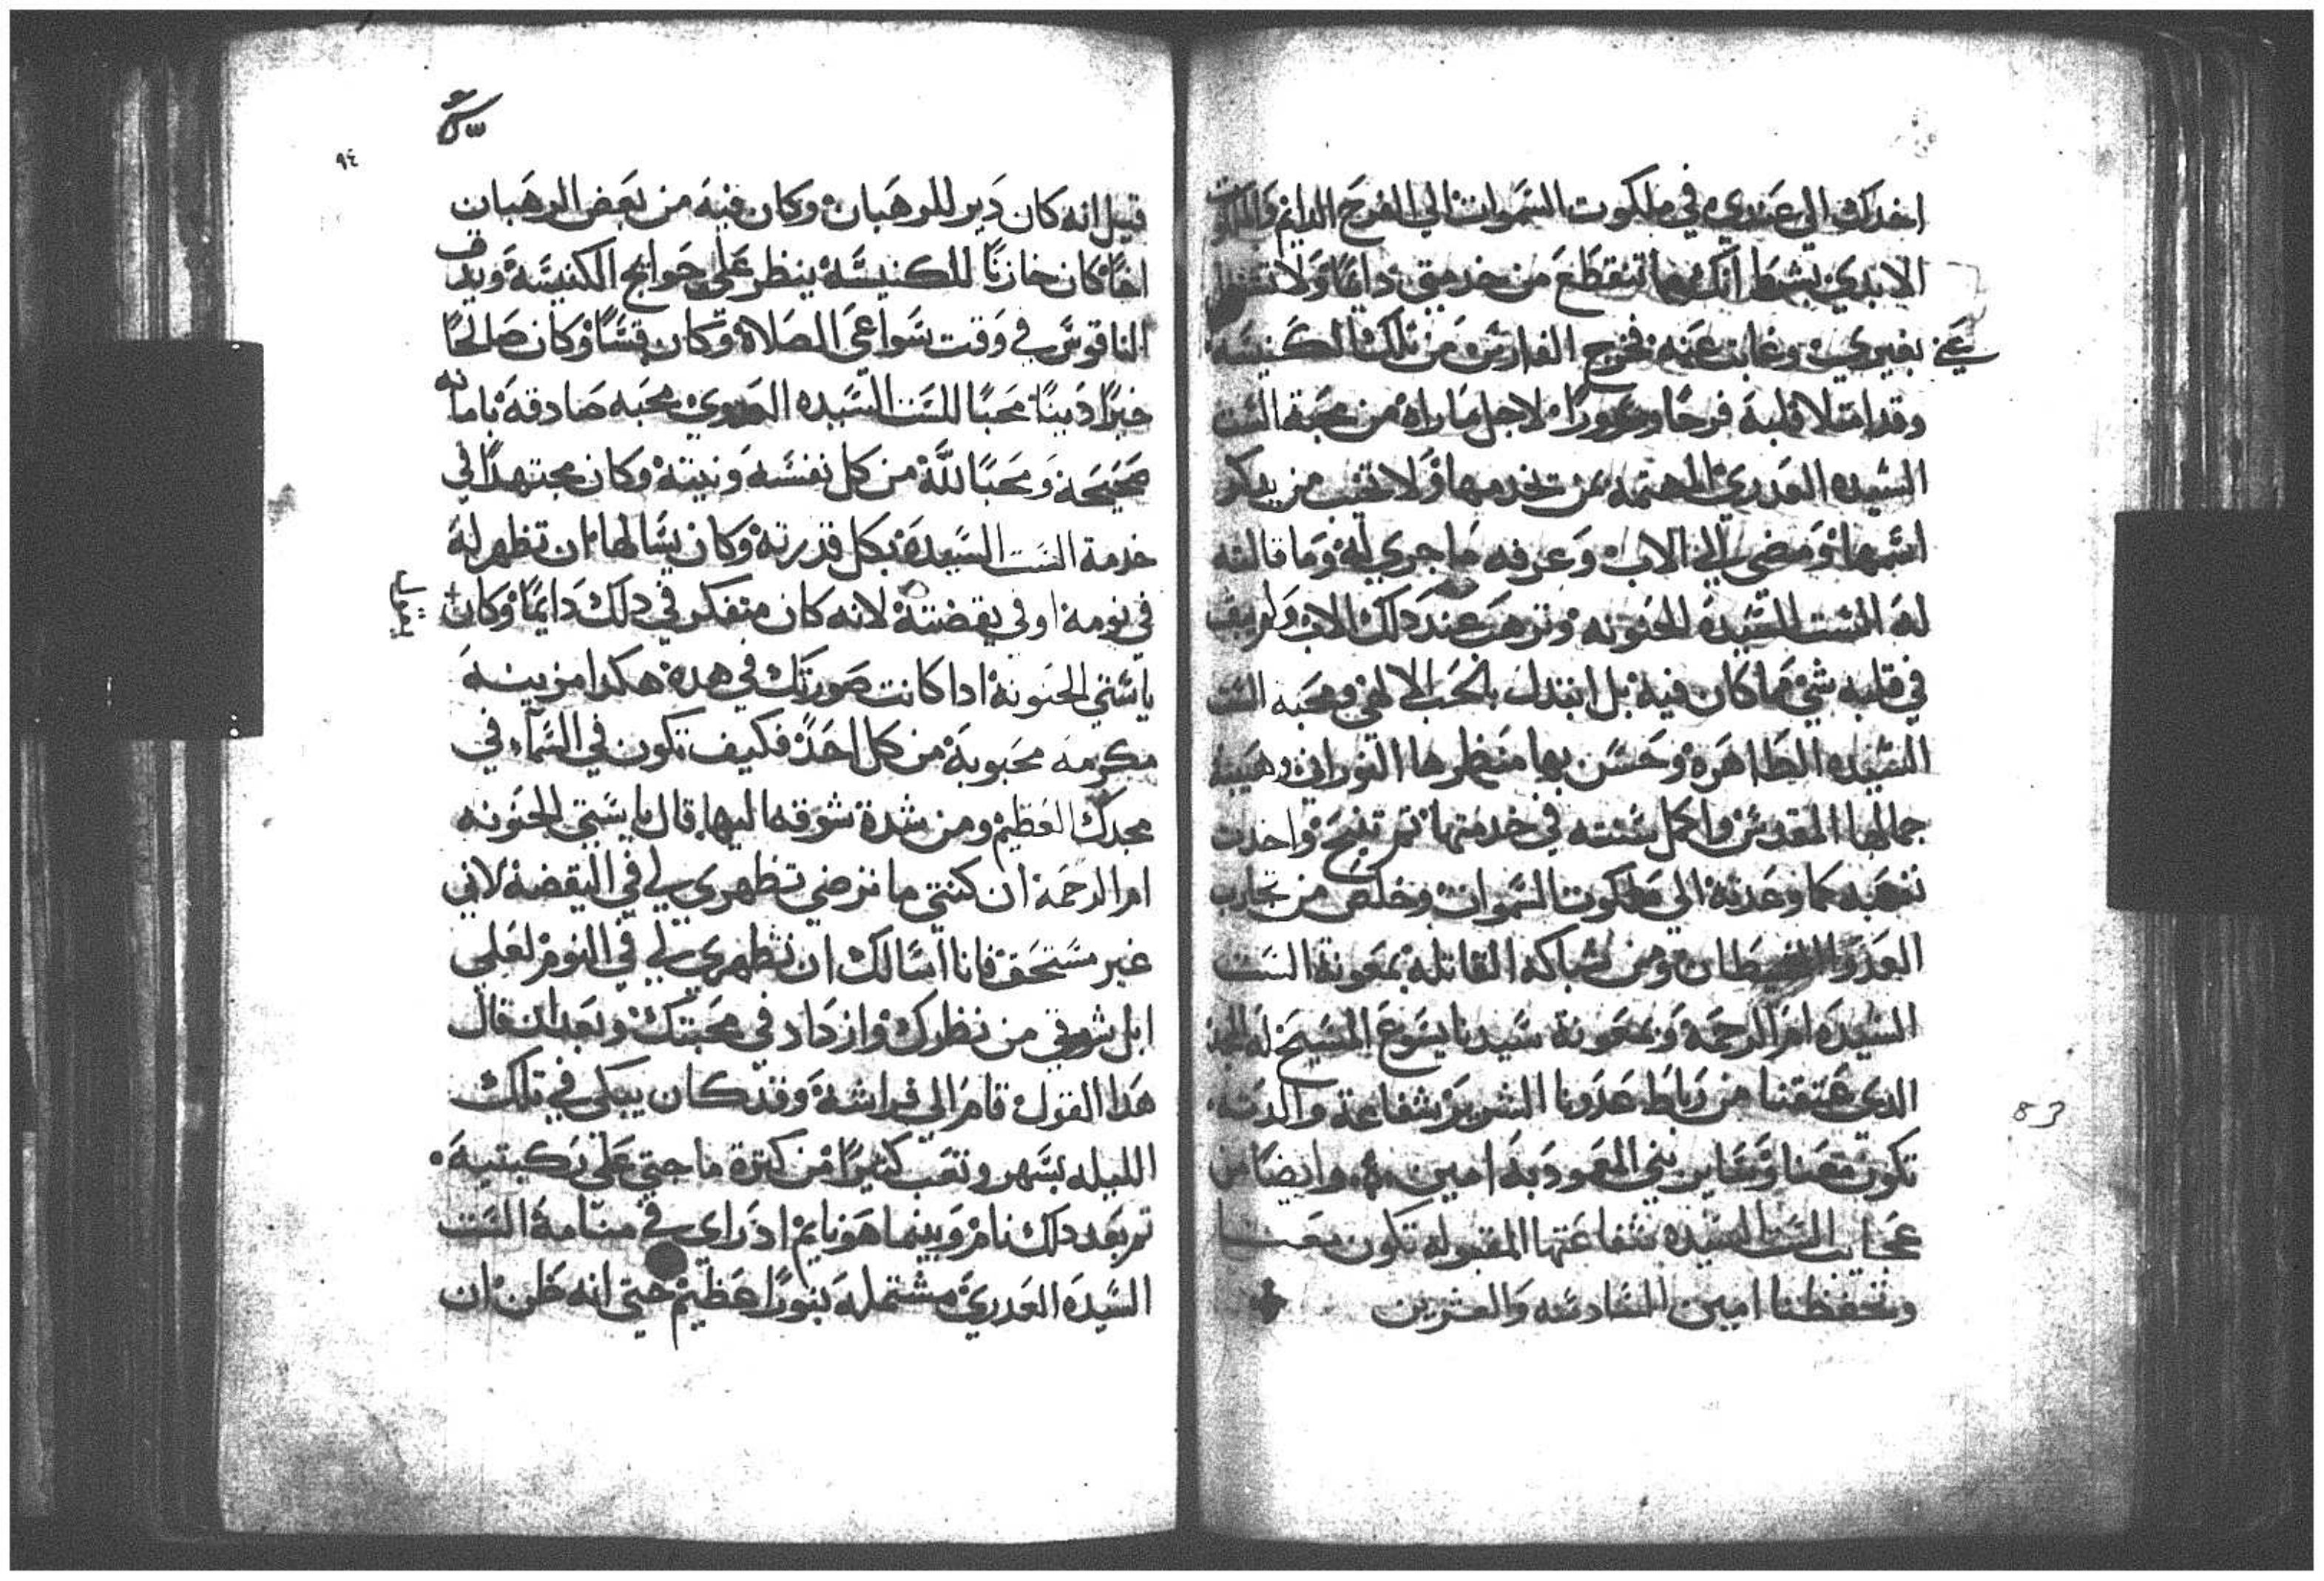 اخدك الي عندي في ملكوت السموات الي الفرح الدايم والملكوت
الابدي بشرط انك ما تنقطع من خدمتي دايما ولا تشتغل
عني بغيري وغابت عنه فخرج الفارس من تلك الكنيسه
وقد امتلا قلبه فرحا وسرورا لاجل ما راه من محبة الست
السيده العدري المهتمه بمن تخدمها ولا تخيب من يدكر
اسمها ومضي الي الاب وعرفه ما جري له وما قالته
له الست السيدة الحنونه وترهب عند دلك الاب ولم يبقى
في قلبه شي مما كان فيه بل ابتدل بالحب الالهي ومحبة الست
السيده الطاهرة وحسن بها منظرها النوراني وهيبة
جمالها المقدس واكمل سنته في خدمتها ثم تنيح واخدت
نفسه كما وعدته الي ملكوت السموات وخلص من تجارب
العدو الشيطان ومن شباكه القاتله بمعونة الست
السيدة ام الرحمة وبمعونة سيدنا يسوع المسيح له المجد
الدي عتقنا من رباط عدونا الشرير شفاعة والدته
تكون معنا ومع ساير بني المعوديه امين وايضا من
عجايب الست السيده شفاعتها المقبوله تكون معنا
وتحفظنا امين السادسه والعشرين
83
٩٤
قيل انه كان دير للرهبان وكان فيه من بعض الرهبان
اخا كان خازنا للكنيسة ينظر علي حوايج الكنيسة ويدق
الناقوس في وقت سواعي الصلاة وكان قسا وكان صالحا
خيرا دينا محبا للست السيده العدري محبه صادقه بامانه
صحيحة ومحبا لله من كل نفسه ونيته وكان مجتهدا في
خدمة الست السيدة بكل قدرته وكان يسالها ان تظهر له
في نومه او في يقضته لانه كان متفكر في دلك دايما وكان
ياستي الحنونة ادا كانت صورتك في هده هكدا مزينة
مكرمه محبوبة من كل احد فكيف تكون في السماء في
مجدك العظيم ومن شدة شوقه اليها قال يا ستي الحنونه
ام الرحمة ان كنتي ما ترضي تظهري لي في اليقضة لاني
غير مستحق فانا اسالك ان تظهري لي في النوم لعلي
ابل شوقي من نظرك وازداد في محبتك وبعد ان قال
هدا القول قام الي فراشة وقد كان يبكي في تلك
الليله بسهر وتعب كثيرا من كترة ما جتي علي ركبتية
تم بعد دلك نام وبينما هو نايم اد راى في منامة الست
السيدة العدري مشتملة بنورا عظيم حتي انه ظن ان